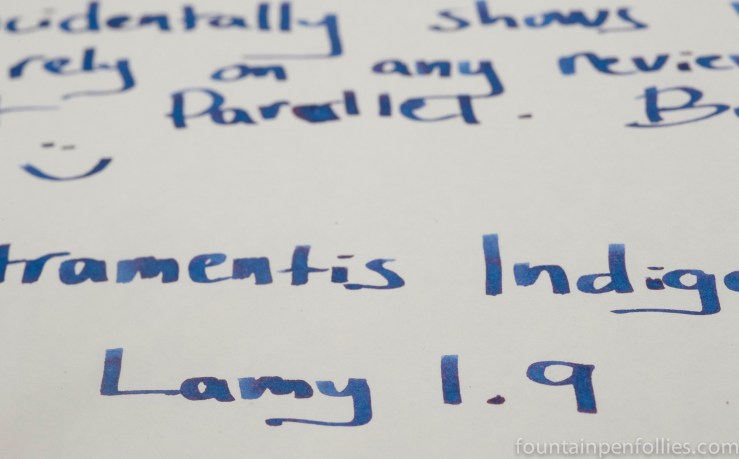 cidentally shows
rely on any revie
Parallel. B
tramentis Indigo
Lamy 1.9
fountainpenfollies.com